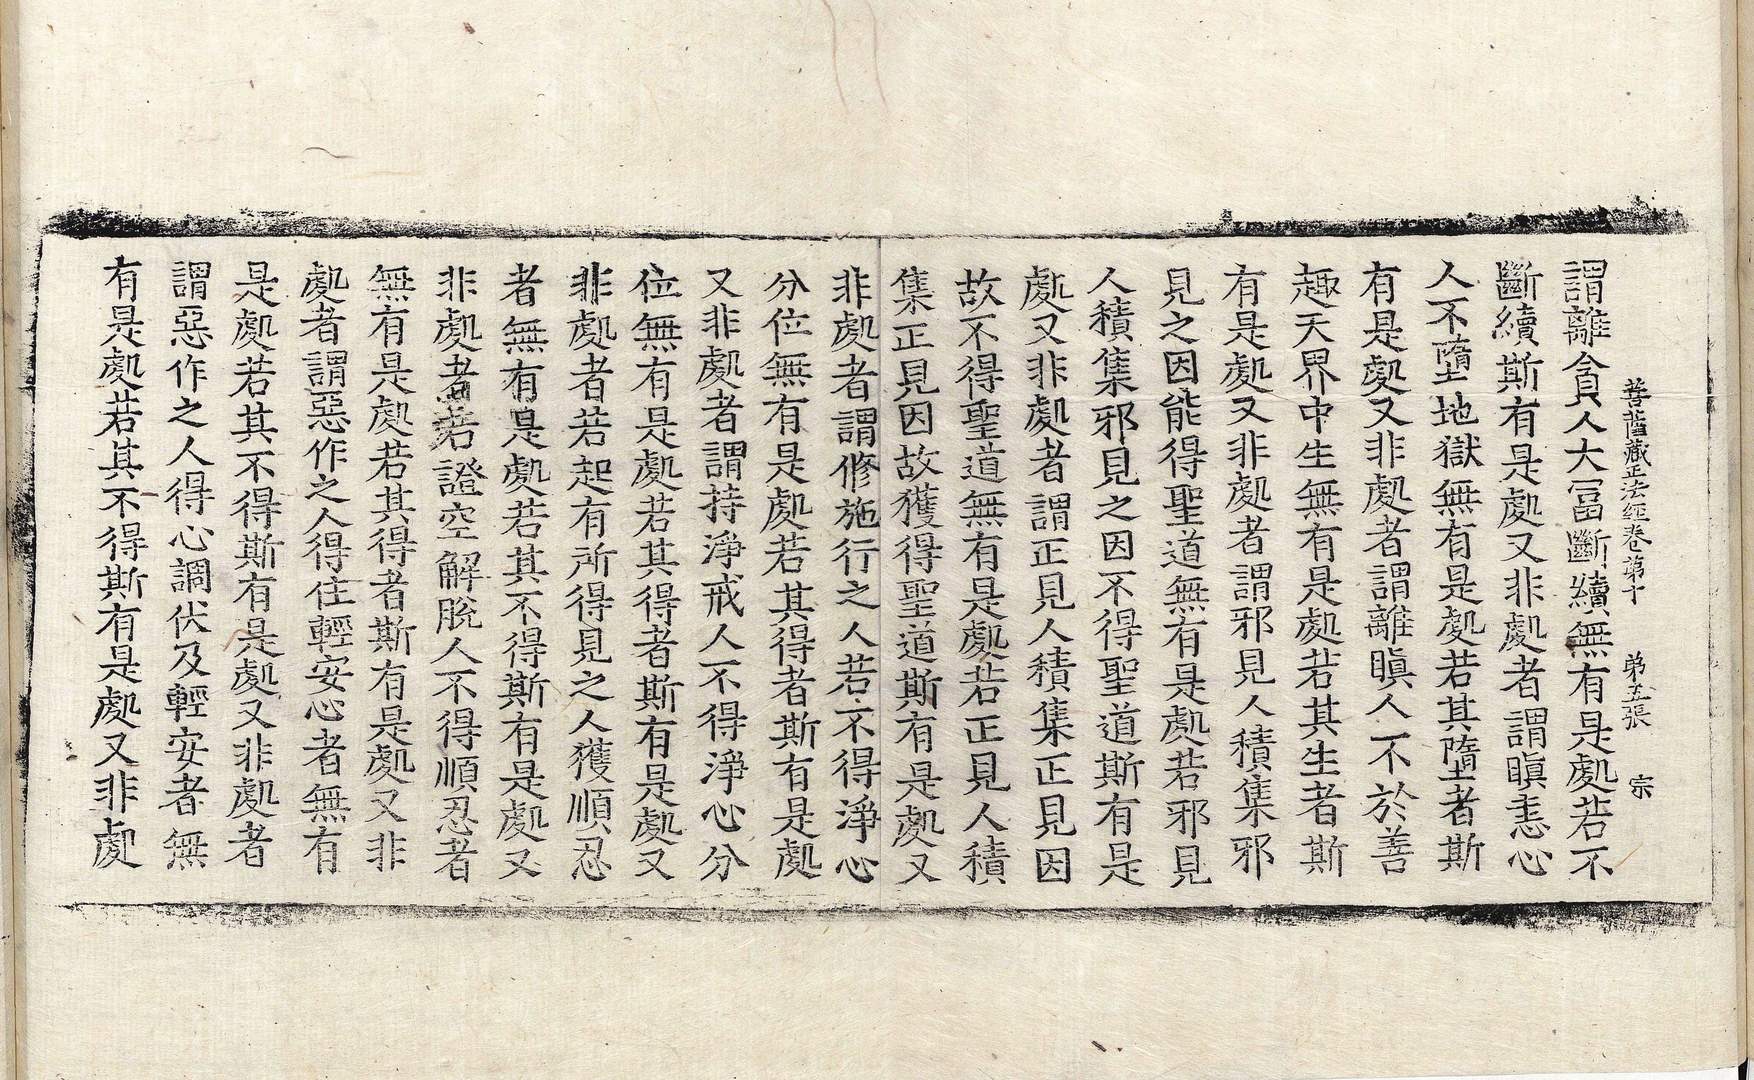 菩薩藏正法經卷第十 第五張 宗
謂離貪人大冨斷續無有是處若不
斷續斯有是處又非處者謂瞋恚心
人不墮地獄無有是處若其墮者斯
有是處又非處者謂離瞋人不於善
趣天界中生無有是處若其生者斯
有是處又非處者謂邪見人積集邪
見之因能得聖道無有是處若邪見
人積集邪見之因不得聖道斯有是
處又非處者謂正見人積集正見因
故不得聖道無有是處若正見人積
集正見因故獲得聖道斯有是處又
非處者謂修施行之人若不得淨心
分位無有是處若其得者斯有是處
又非處者謂持淨戒人不得淨心分
位無有是處若其得者斯有是處又
非處者若起有所得見之人獲順忍
者無有是處若其不得斯有是處又
非處者若證空解脫人不得順忍者
無有是處若其得者斯有是處又非
處者謂惡作之人得住輕安心者無有
是處若其不得斯有是處又非處者
謂惡作之人得心調伏及輕安者無
有是處若其不得斯有是處又非處